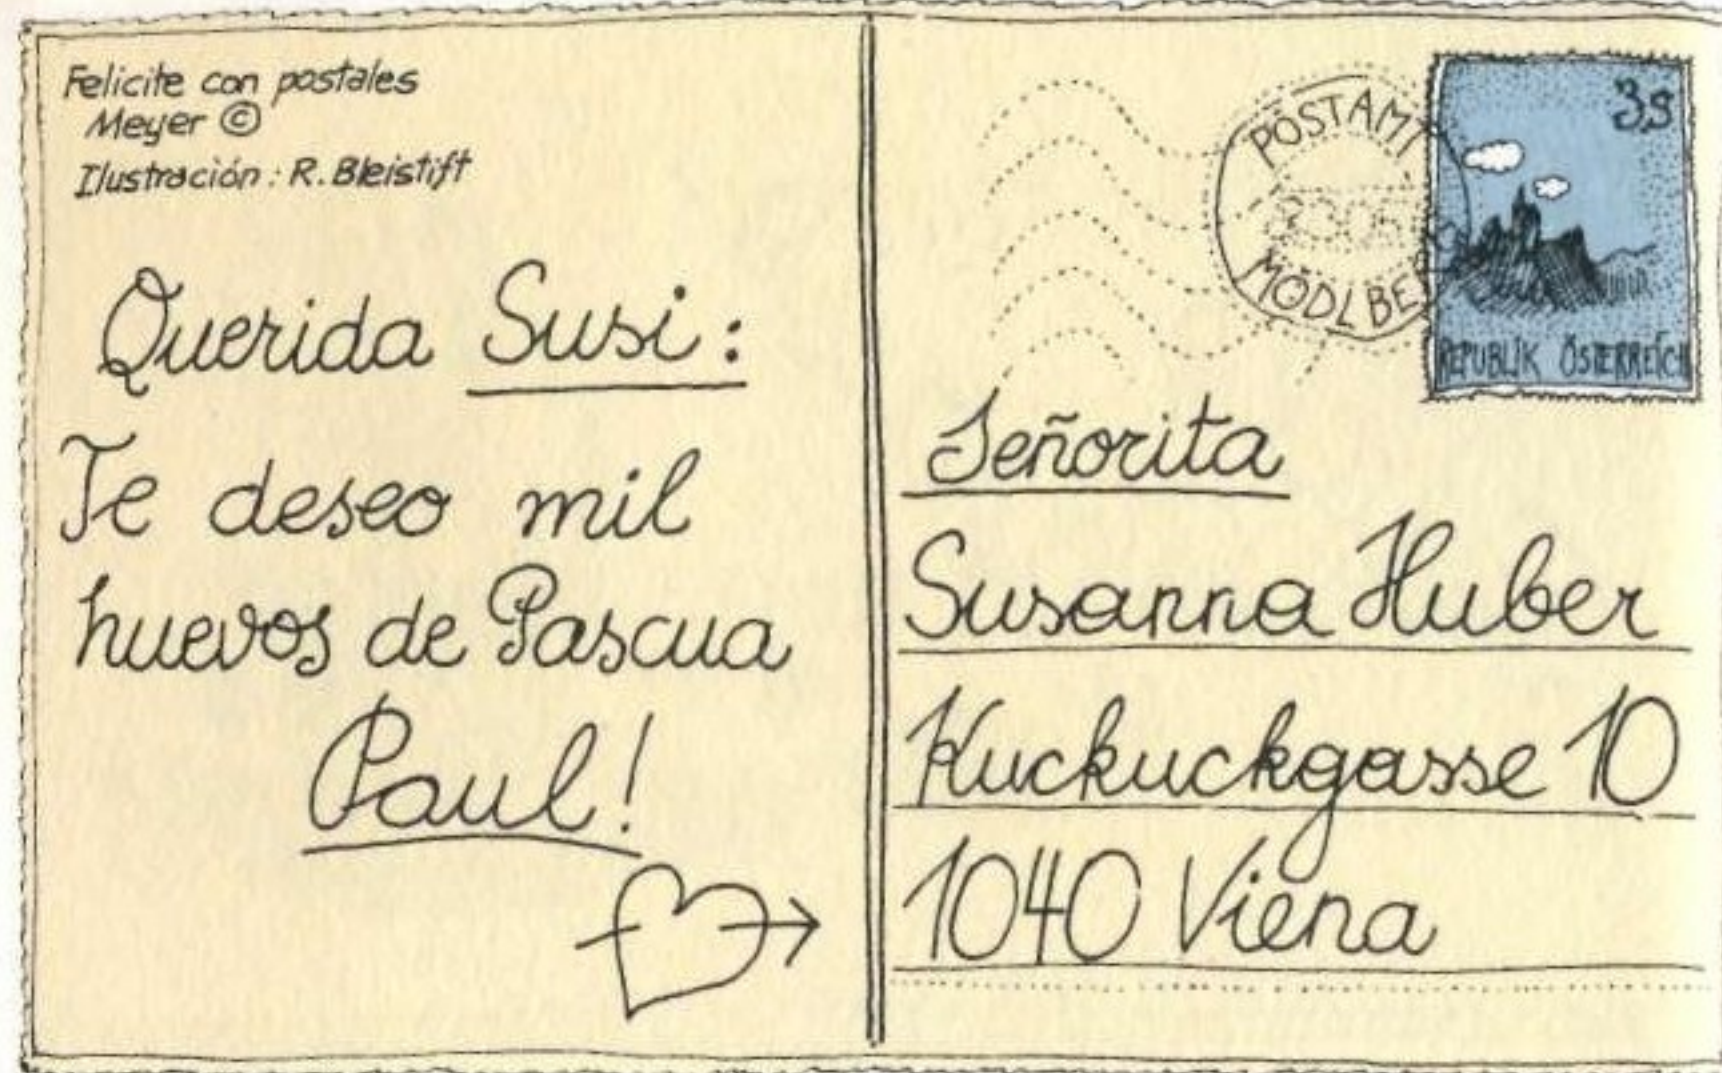 Felicite con postales
Meyer ©
Ilustración: R. Bleistift
Querida Susi:
Te deseo mil
huevos de Pascua
Paul!
POSTAMT
MÖDLBE
3S
REPUBLIK ÖSTERREICH
Señorita
Susanna Huber
Kuckuckgasse 10
1040 Viena